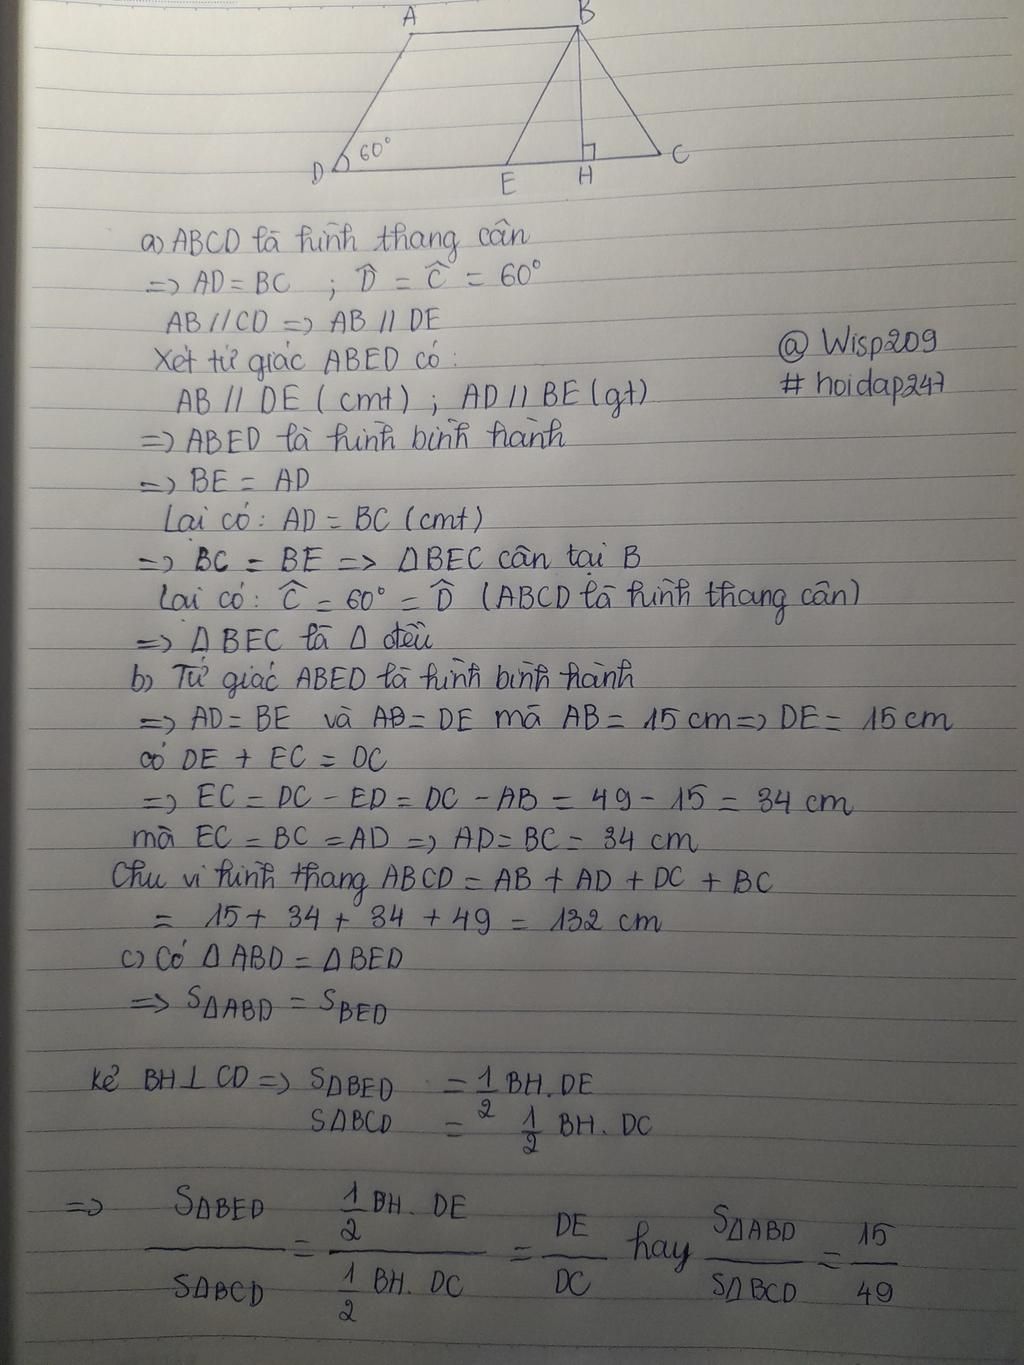 A B
D 60° E H C
a) ABCD là hình thang cân
=> AD = BC ; D̂ = Ĉ = 60°
AB // CD => AB // DE
Xét tứ giác ABED có:
@ Wisp209
AB // DE (cmt) ; AD // BE (gt)
# hoidap247
=> ABED là hình bình hành
=> BE = AD
Lại có: AD = BC (cmt)
=> BC = BE => Δ BEC cân tại B
Lại có: Ĉ = 60° = D̂ (ABCD là hình thang cân)
=> Δ BEC là Δ đều
b) Tứ giác ABED là hình bình hành
=> AD = BE và AB = DE mà AB = 15 cm => DE = 15 cm
có DE + EC = DC
=> EC = DC - ED = DC - AB = 49 - 15 = 34 cm
mà EC = BC = AD => AD = BC = 34 cm
Chu vi hình thang ABCD = AB + AD + DC + BC
= 15 + 34 + 34 + 49 = 132 cm
c) Có Δ ABD = Δ BED
=> SΔABD = SBED
Kẻ BH ⊥ CD => SΔBED = 1/2 BH. DE
SΔBCD = 1/2 BH. DC
=> SΔBED / SΔBCD = 1/2 BH. DE / 1/2 BH. DC = DE / DC hay SΔABD / SΔBCD = 15 / 49